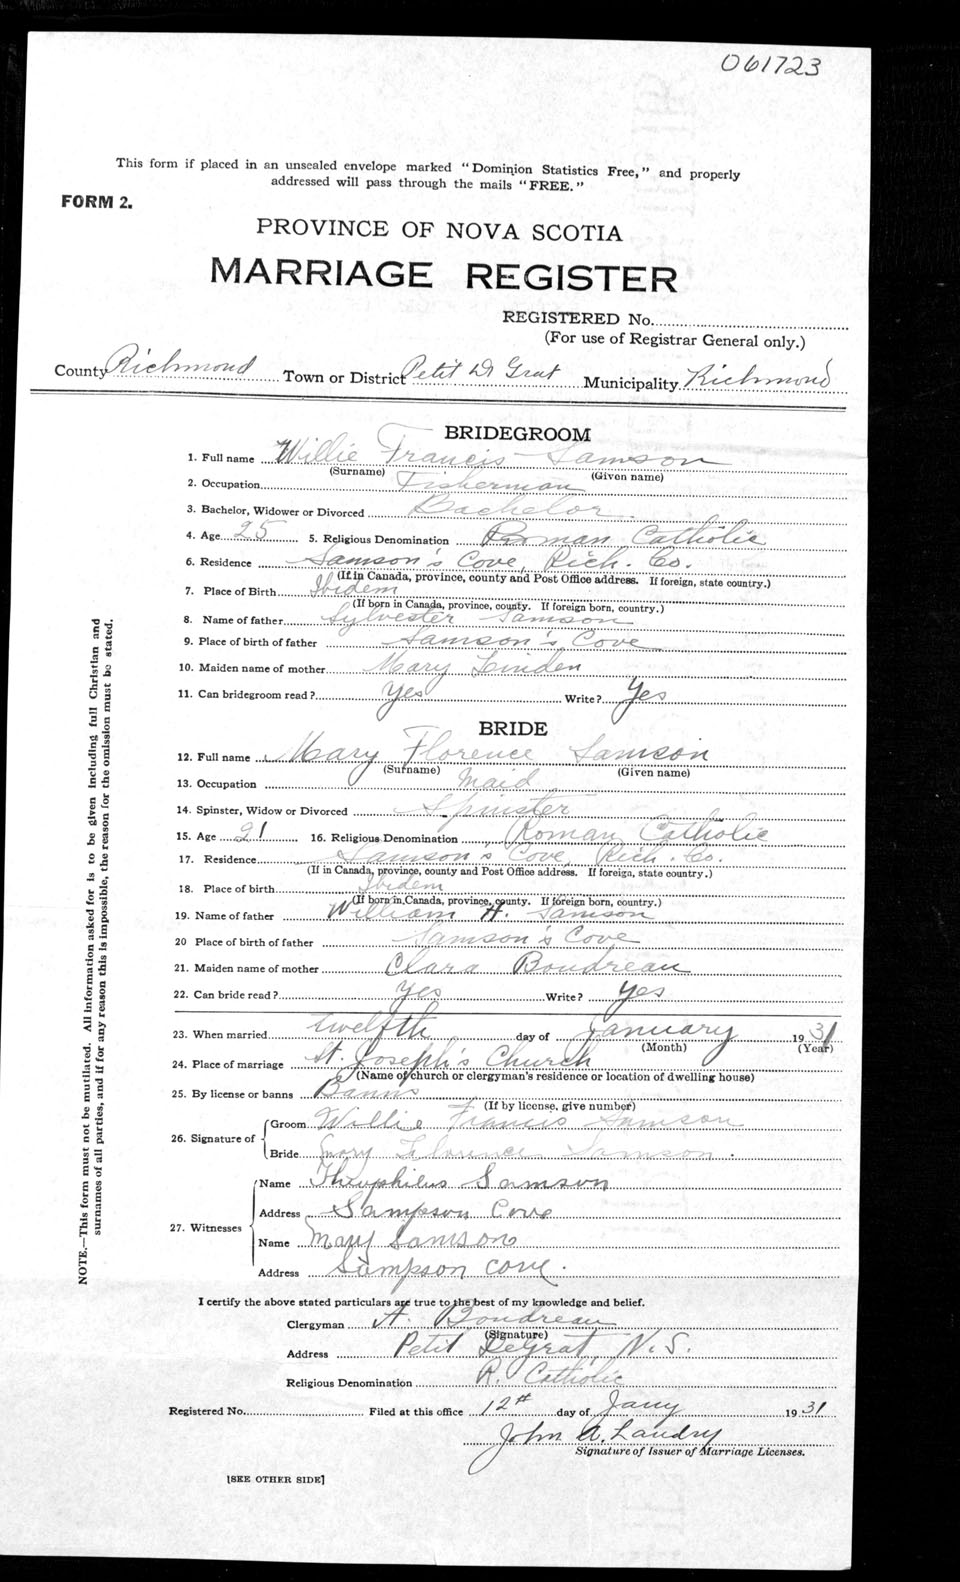 061723
This form if placed in an unsealed envelope marked "Dominion Statistics Free," and properly
addressed will pass through the mails "FREE."
FORM 2.
PROVINCE OF NOVA SCOTIA
MARRIAGE REGISTER
REGISTERED No.
(For use of Registrar General only.)
County Richmond Town or District Petit D Grat Municipality Richmond
BRIDEGROOM
1. Full name Willie Francis Samson
(Surname) (Given name)
2. Occupation Fisherman
3. Bachelor, Widower or Divorced Bachelor
4. Age 25 5. Religious Denomination Roman Catholic
6. Residence Samson's Cove, Rich. Co.
(If in Canada, province, county and Post Office address. If foreign, state country.)
7. Place of Birth Ibidem
(If born in Canada, province, county. If foreign born, country.)
8. Name of father Sylvester Samson
9. Place of birth of father Samson's Cove
10. Maiden name of mother Mary Linden
11. Can bridegroom read? Yes Write? Yes
BRIDE
12. Full name Mary Florence Samson
(Surname) (Given name)
13. Occupation Maid
14. Spinster, Widow or Divorced Spinster
15. Age 21 16. Religious Denomination Roman Catholic
17. Residence Samson's Cove, Rich. Co.
(If in Canada, province, county and Post Office address. If foreign, state country.)
18. Place of birth Ibidem
(If born in Canada, province, county. If foreign born, country.)
19. Name of father William H. Samson
20 Place of birth of father Samson's Cove
21. Maiden name of mother Clara Boudreau
22. Can bride read? Yes Write? Yes
23. When married twelfth day of January 1931
(Month) (Year)
24. Place of marriage St. Joseph's Church
(Name of church or clergyman's residence or location of dwelling house)
25. By license or banns Banns
(If by license, give number)
26. Signature of Groom Willie Francis Samson
Bride Mary Florence Samson.
27. Witnesses Name Theophilus Samson
Address Sampson Cove
Name Mary Samson
Address Sampson cove.
I certify the above stated particulars are true to the best of my knowledge and belief.
Clergyman A. Boudreau
(Signature)
Address Petit DeGrat, N.S.
Religious Denomination R. Catholic
Registered No. Filed at this office 12th day of Jany 1931
John A. Landry
Signature of Issuer of Marriage Licenses.
[SEE OTHER SIDE]
NOTE.—This form must not be mutilated. All information asked for is to be given including full Christian and
surnames of all parties, and if for any reason this is impossible, the reason for the omission must be stated.